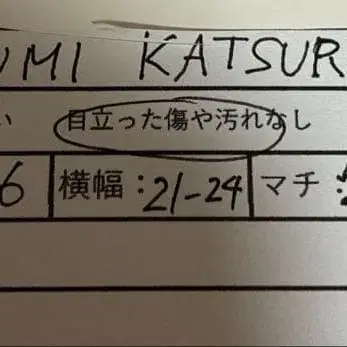 UMI KATSUR
い 目立った傷や汚れなし
6 横幅：21-24 マチ：